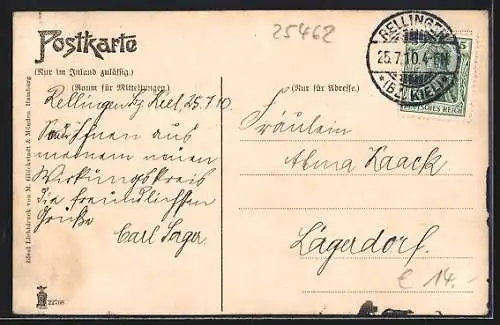 25462
Postkarte
(Nur im Inland zulässig.)
(Raum für Mitteilungen)
Rellingen bz Kiel, 25.7.10.
Ihnen aus
meinem neuen
Wirkungskreis
die freundlichsten
Grüße
Carl Sager
Ideal Lichtdruck von M. Glückstadt & Münden, Hamburg
22708
RELLINGEN
25.7.10.4-5N.
*(BZ. KIEL)*
5
DEUTSCHES REICH
(Nur für Adresse.)
Fräulein
Alma Kaack
Lägerdorf.
€ 14.-